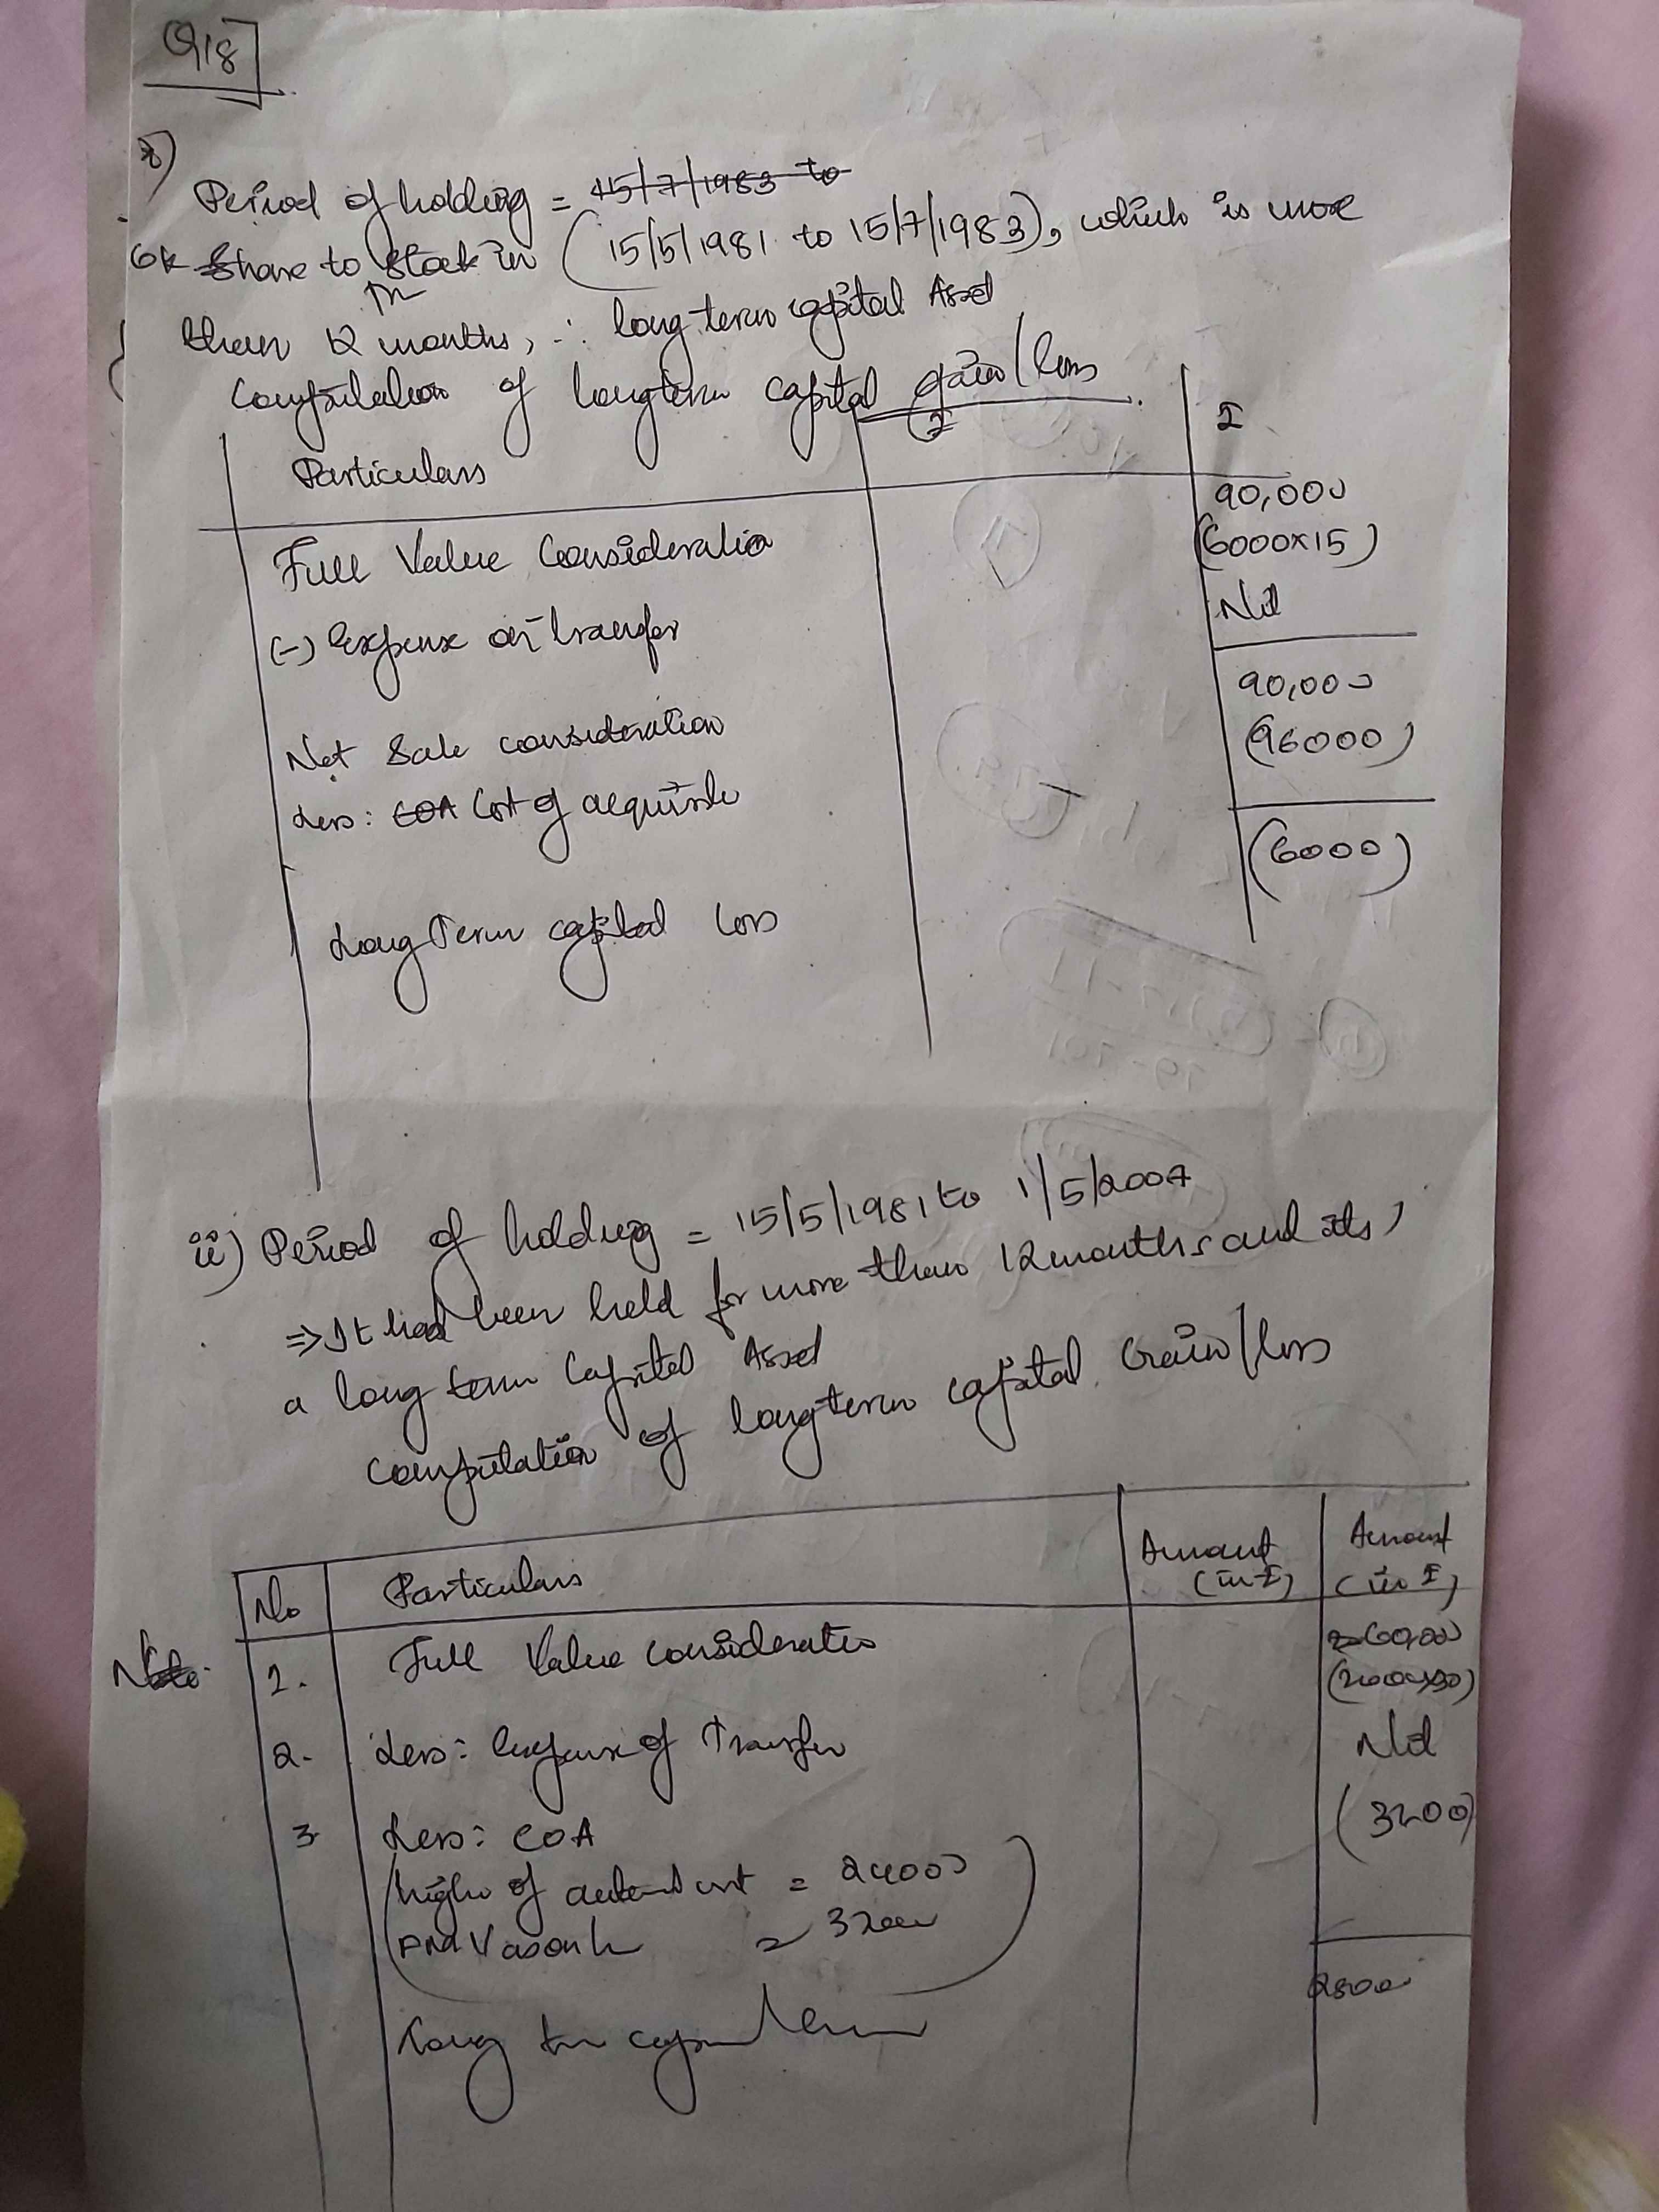 Q18
Period of holding = 15/7/1983 to
6k Share to Stock in (15/5/1981 to 15/7/1983), which is more
than 12 months, ∴ long term capital Asset
Computation of longterm capital gain/loss
Particulars ₹ ₹
Full Value Consideration 90,000
(6000x15)
(-) Expense on transfer Nil
Net Sale consideration 90,000
Less: COA Cost of acquisition (96000)
Long Term capital loss (6000)
ii) Period of holding = 15/5/1981 to 1/5/2007
⇒ It had been held for more than 12 months and its
a long term Capital Asset
Computation of longterm capital Gain/loss
No Particulars Amount (in ₹) Amount (in ₹)
Note 1. Full Value consideration 60,000
(2000x30)
2. Less: Expense of Transfer Nil
3 Less: COA (3200)
higher of actual cost = 24000
FMV as on = 32000
Long term capital 2800